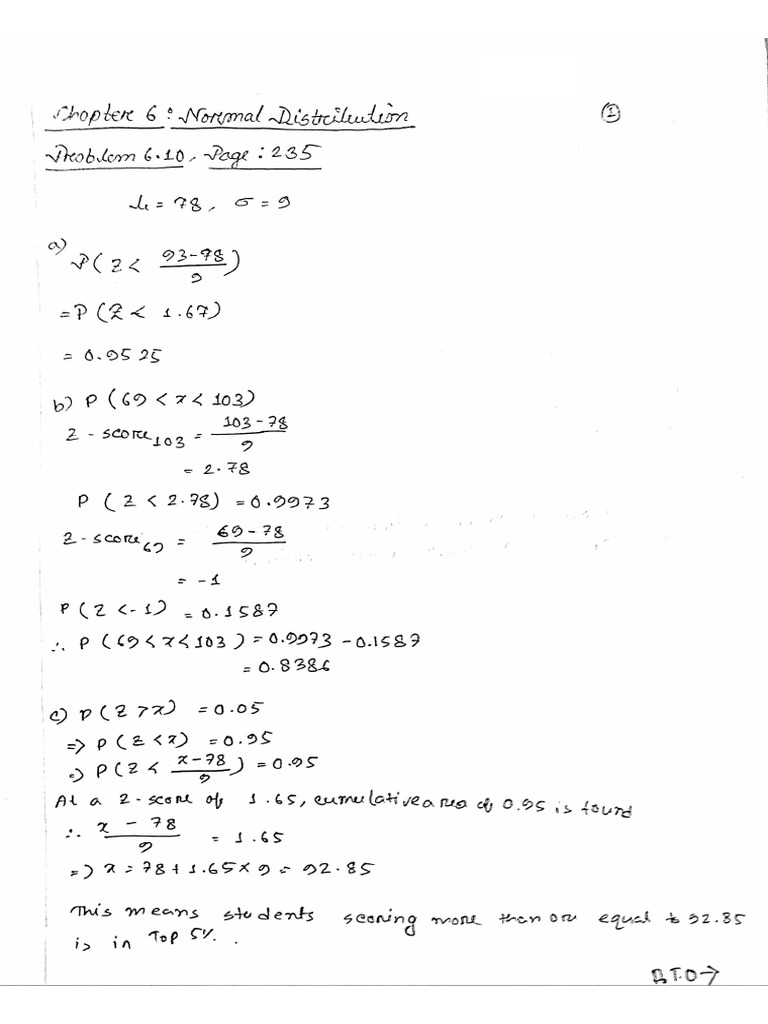 Chapter 6: Normal Distribution
①
Problem 6.10, Page: 235
μ = 78, σ = 9
a)
P(Z < (93-78)/9)
= P(Z < 1.67)
= 0.9525
b) P(69 < x < 103)
Z-score₁₀₃ = (103-78)/9
= 2.78
P(Z < 2.78) = 0.9973
Z-score₆₉ = (69-78)/9
= -1
P(Z < -1) = 0.1587
∴ P(69 < x < 103) = 0.9973 - 0.1587
= 0.8386
c) P(Z > x) = 0.05
=> P(Z < x) = 0.95
=> P(Z < (x-78)/9) = 0.95
At a Z-score of 1.65, cumulative area of 0.95 is found
∴ (x - 78)/9 = 1.65
=> x = 78 + 1.65 × 9 = 92.85
This means students scoring more than or equal to 92.85
is in Top 5%.
P.T.O→